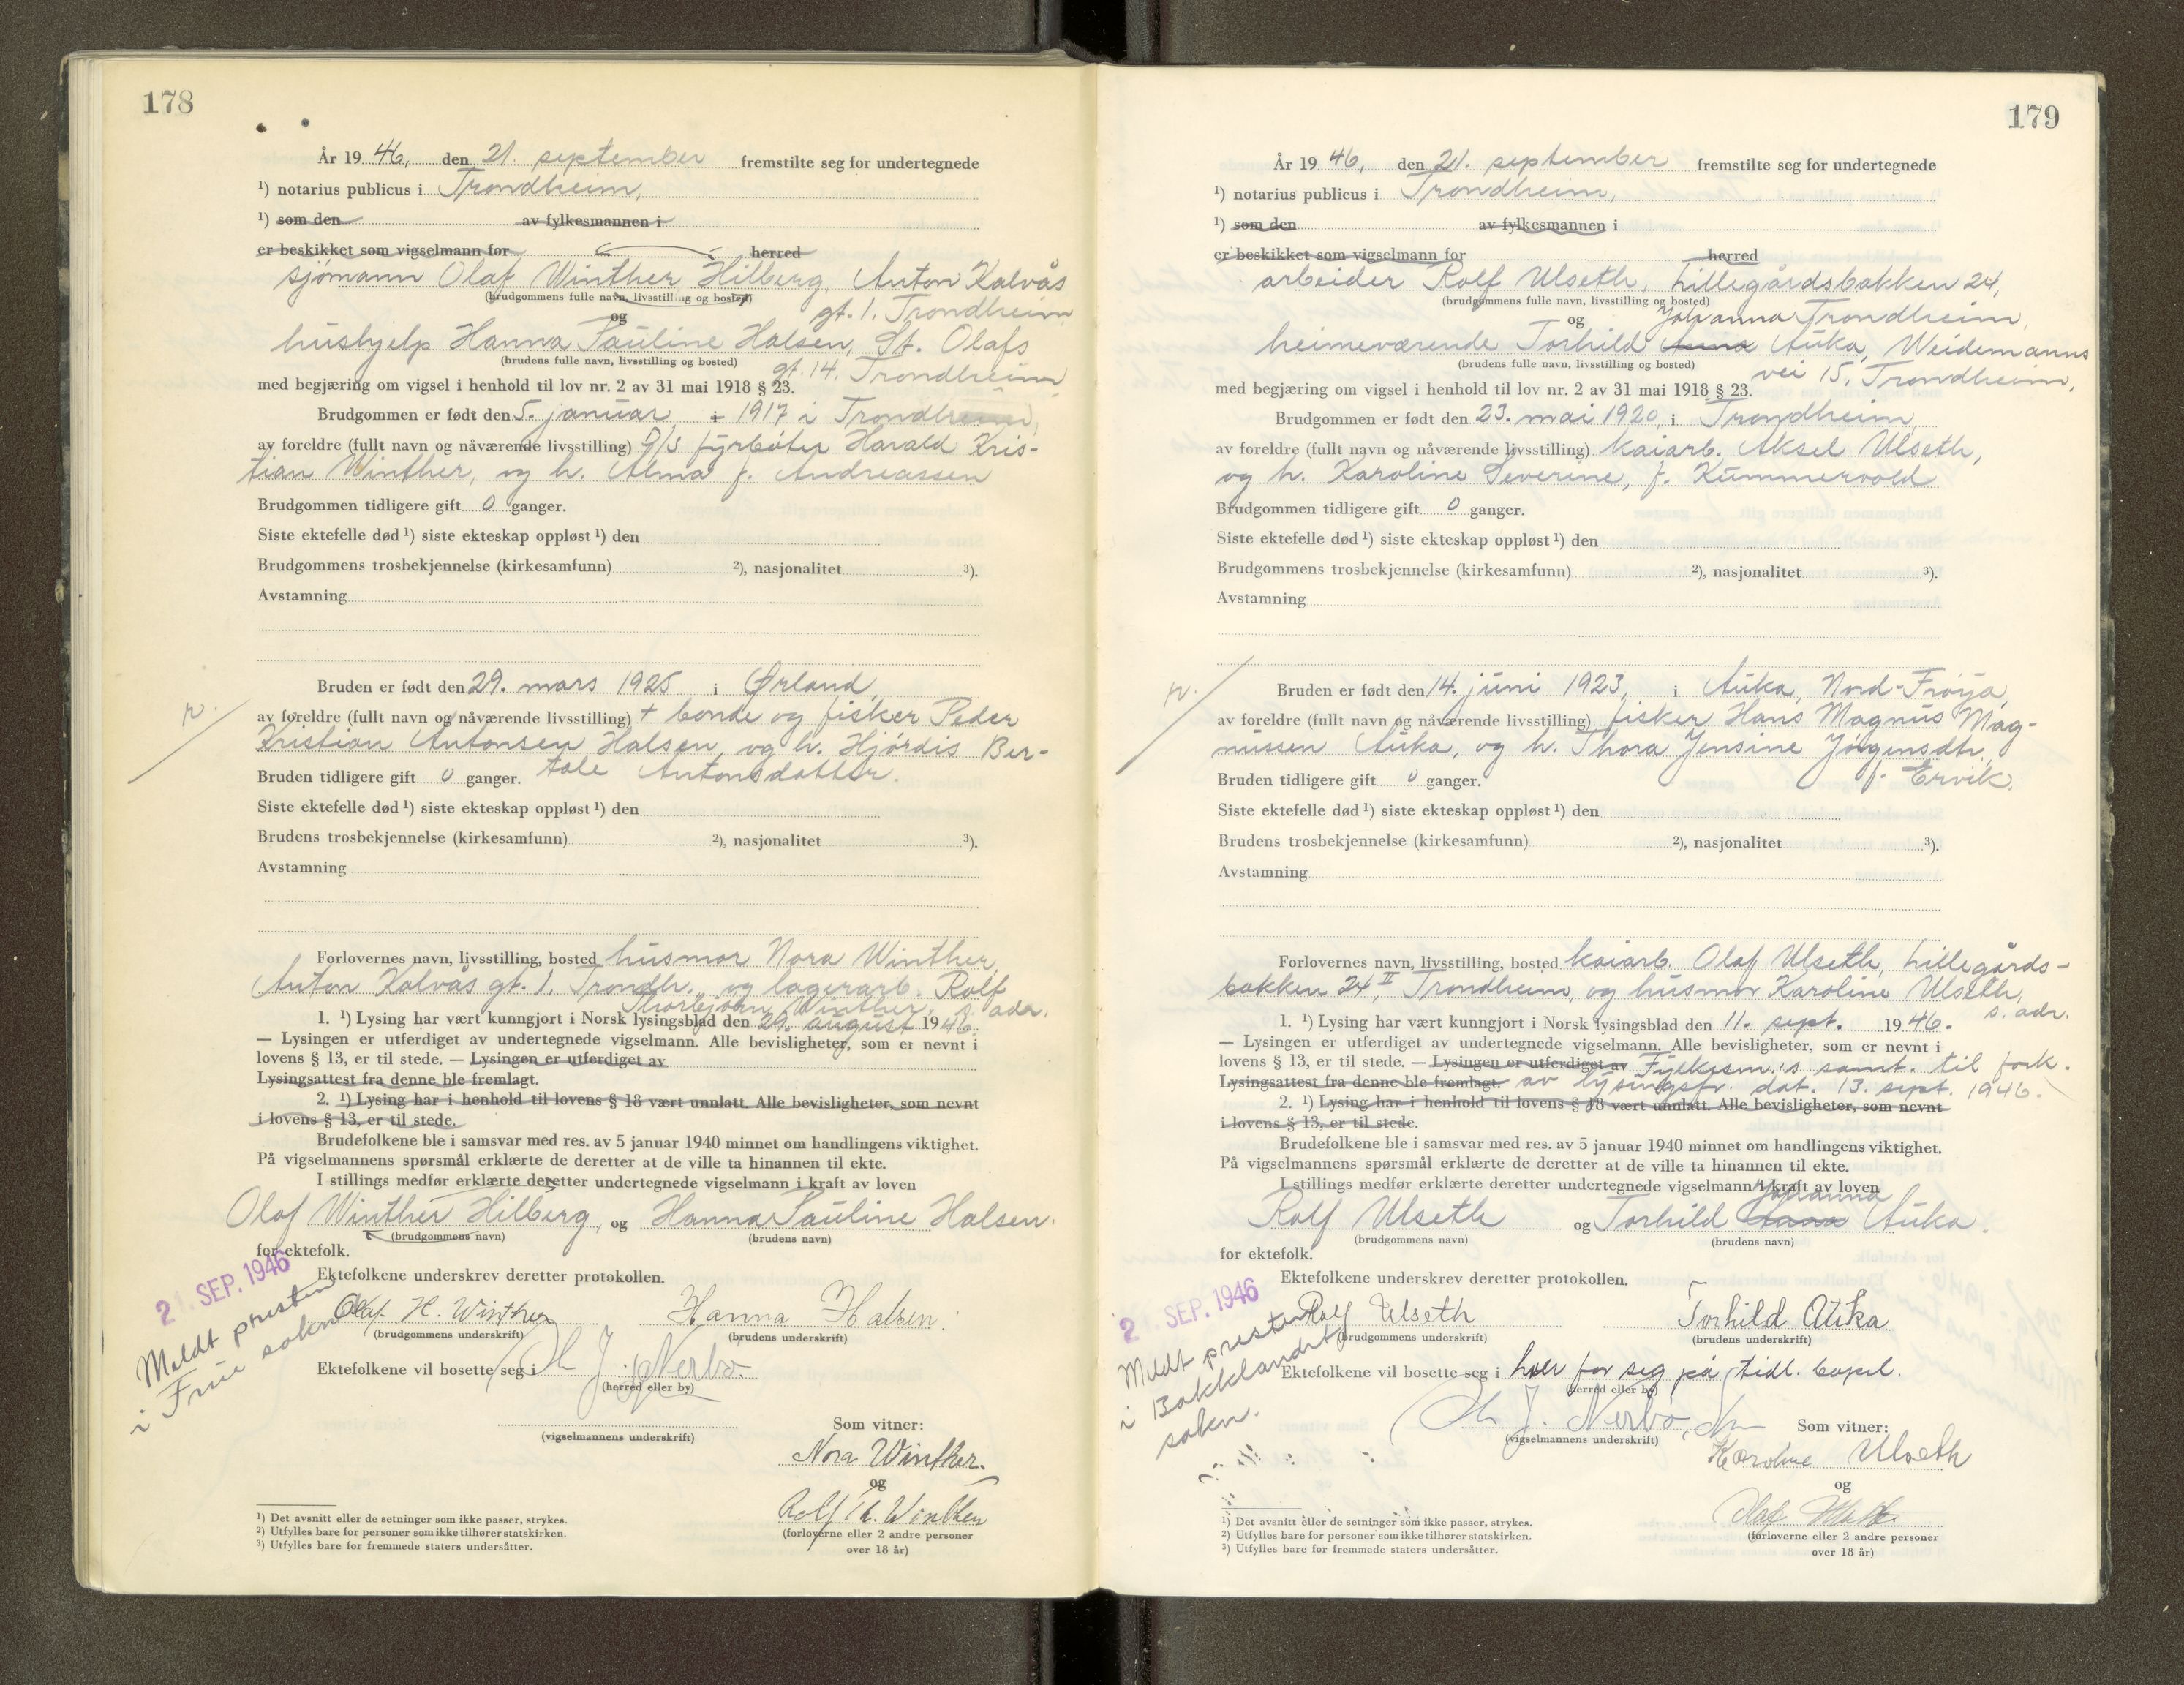 178
År 19 46, den 21. september fremstilte seg for undertegnede
¹) notarius publicus i Trondheim,
¹) som den av fylkesmannen i
er beskikket som vigselmann for herred
sjømann Olaf Winther Hilberg, Anton Kalvås
(brudgommens fulle navn, livsstilling og bosted) gt. 1, Trondheim
og
hushjelp Hanna Pauline Halsen, St. Olafs
(brudens fulle navn, livsstilling og bosted) gt. 14, Trondheim
med begjæring om vigsel i henhold til lov nr. 2 av 31 mai 1918 § 23.
Brudgommen er født den 5. januar 1917 i Trondheim,
av foreldre (fullt navn og nåværende livsstilling) fyrbøter Harald Kris-
tian Winther, og h. Alma f. Andreassen
Brudgommen tidligere gift 0 ganger.
Siste ektefelle død ¹) siste ekteskap oppløst ¹) den
Brudgommens trosbekjennelse (kirkesamfunn) ²), nasjonalitet ³).
Avstamning
Bruden er født den 29. mars 1925 i Ørland,
av foreldre (fullt navn og nåværende livsstilling) + bonde og fisker Peder
Kristian Antonsen Halsen, og h. Hjórdis Ber-
Bruden tidligere gift 0 ganger. tole Antonsdatter.
Siste ektefelle død ¹) siste ekteskap oppløst ¹) den
Brudens trosbekjennelse (kirkesamfunn) ²), nasjonalitet ³).
Avstamning
Forlovernes navn, livsstilling, bosted husmor Nora Winther,
Anton Kalvås gt. 1, Trondh., og lagerarb. Rolf
Thorbjørn Winther, s. adr.
1. ¹) Lysing har vært kunngjort i Norsk lysingsblad den 29. august 1946.
— Lysingen er utferdiget av undertegnede vigselmann. Alle bevisligheter, som er nevnt i
lovens § 13, er til stede. — Lysingen er utferdiget av
Lysingsattest fra denne ble fremlagt.
2. ¹) Lysing har i henhold til lovens § 18 vært unnlatt. Alle bevisligheter, som nevnt
i lovens § 13, er til stede.
Brudefolkene ble i samsvar med res. av 5 januar 1940 minnet om handlingens viktighet.
På vigselmannens spørsmål erklærte de deretter at de ville ta hinannen til ekte.
I stillings medfør erklærte deretter undertegnede vigselmann i kraft av loven
Olaf Winther Hilberg, og Hanna Pauline Halsen.
(brudgommens navn) (brudens navn)
for ektefolk.
Ektefolkene underskrev deretter protokollen.
2 SEP. 1946
Meldt presten
i Frue sokn
Olaf H. Winther Hanna Halsen.
(brudgommens underskrift) (brudens underskrift)
Ektefolkene vil bosette seg i
J. Nerbö
(herred eller by)
(vigselmannens underskrift)
Som vitner:
Nora Winther.
og
Rolf Th. Winther
(forloverne eller 2 andre personer
over 18 år)
¹) Det avsnitt eller de setninger som ikke passer, strykes.
²) Utfylles bare for personer som ikke tilhører statskirken.
³) Utfylles bare for fremmede staters undersåtter.
179
År 19 46, den 21. september fremstilte seg for undertegnede
¹) notarius publicus i Trondheim,
¹) som den av fylkesmannen i
er beskikket som vigselmann for herred
arbeider Rolf Ulseth, Lillegårdsbakken 24,
(brudgommens fulle navn, livsstilling og bosted)
og Johanna Trondheim,
heimeværende Torhild Anna Auka, Weidemanns
(brudens fulle navn, livsstilling og bosted) vei 15, Trondheim,
med begjæring om vigsel i henhold til lov nr. 2 av 31 mai 1918 § 23.
Brudgommen er født den 23. mai 1920, i Trondheim,
av foreldre (fullt navn og nåværende livsstilling) kaiarb. Aksel Ulseth,
og h. Karoline Severine, f. Kummervold
Brudgommen tidligere gift 0 ganger.
Siste ektefelle død ¹) siste ekteskap oppløst ¹) den
Brudgommens trosbekjennelse (kirkesamfunn) ²), nasjonalitet ³).
Avstamning
Bruden er født den 14. juni 1923, i Auka, Nord-Frøya,
av foreldre (fullt navn og nåværende livsstilling) fisker Hans Magnus Mag-
nussen Auka, og h. Thora Jensine Jörgensdtr.
Bruden tidligere gift 0 ganger. f. Ervik.
Siste ektefelle død ¹) siste ekteskap oppløst ¹) den
Brudens trosbekjennelse (kirkesamfunn) ²), nasjonalitet ³).
Avstamning
Forlovernes navn, livsstilling, bosted kaiarb. Olaf Ulseth, Lillegårds-
bakken 24 II, Trondheim, og husmor Karoline Ulseth,
s. adr.
1. ¹) Lysing har vært kunngjort i Norsk lysingsblad den 11. sept. 1946.
— Lysingen er utferdiget av undertegnede vigselmann. Alle bevisligheter, som er nevnt i
lovens § 13, er til stede. — Lysingen er utferdiget av Fylkesm.'s samt. til fork.
Lysingsattest fra denne ble fremlagt. av lysingsfr. dat. 13. sept. 1946.
2. ¹) Lysing har i henhold til lovens § 18 vært unnlatt. Alle bevisligheter, som nevnt
i lovens § 13, er til stede.
Brudefolkene ble i samsvar med res. av 5 januar 1940 minnet om handlingens viktighet.
På vigselmannens spørsmål erklærte de deretter at de ville ta hinannen til ekte.
I stillings medfør erklærte deretter undertegnede vigselmann i kraft av loven
Johanna
Rolf Ulseth og Torhild Anna Auka.
(brudgommens navn) (brudens navn)
for ektefolk.
Ektefolkene underskrev deretter protokollen.
2 SEP. 1946
Meldt presten
i Bakklandet
sokn.
Rolf Ulseth Torhild Auka
(brudgommens underskrift) (brudens underskrift)
Ektefolkene vil bosette seg i hver for seg på tidl. bopel.
(herred eller by)
J. Nerbö,
(vigselmannens underskrift)
Som vitner:
Karoline Ulseth
og
Olaf Ulseth
(forloverne eller 2 andre personer
over 18 år)
¹) Det avsnitt eller de setninger som ikke passer, strykes.
²) Utfylles bare for personer som ikke tilhører statskirken.
³) Utfylles bare for fremmede staters undersåtter.